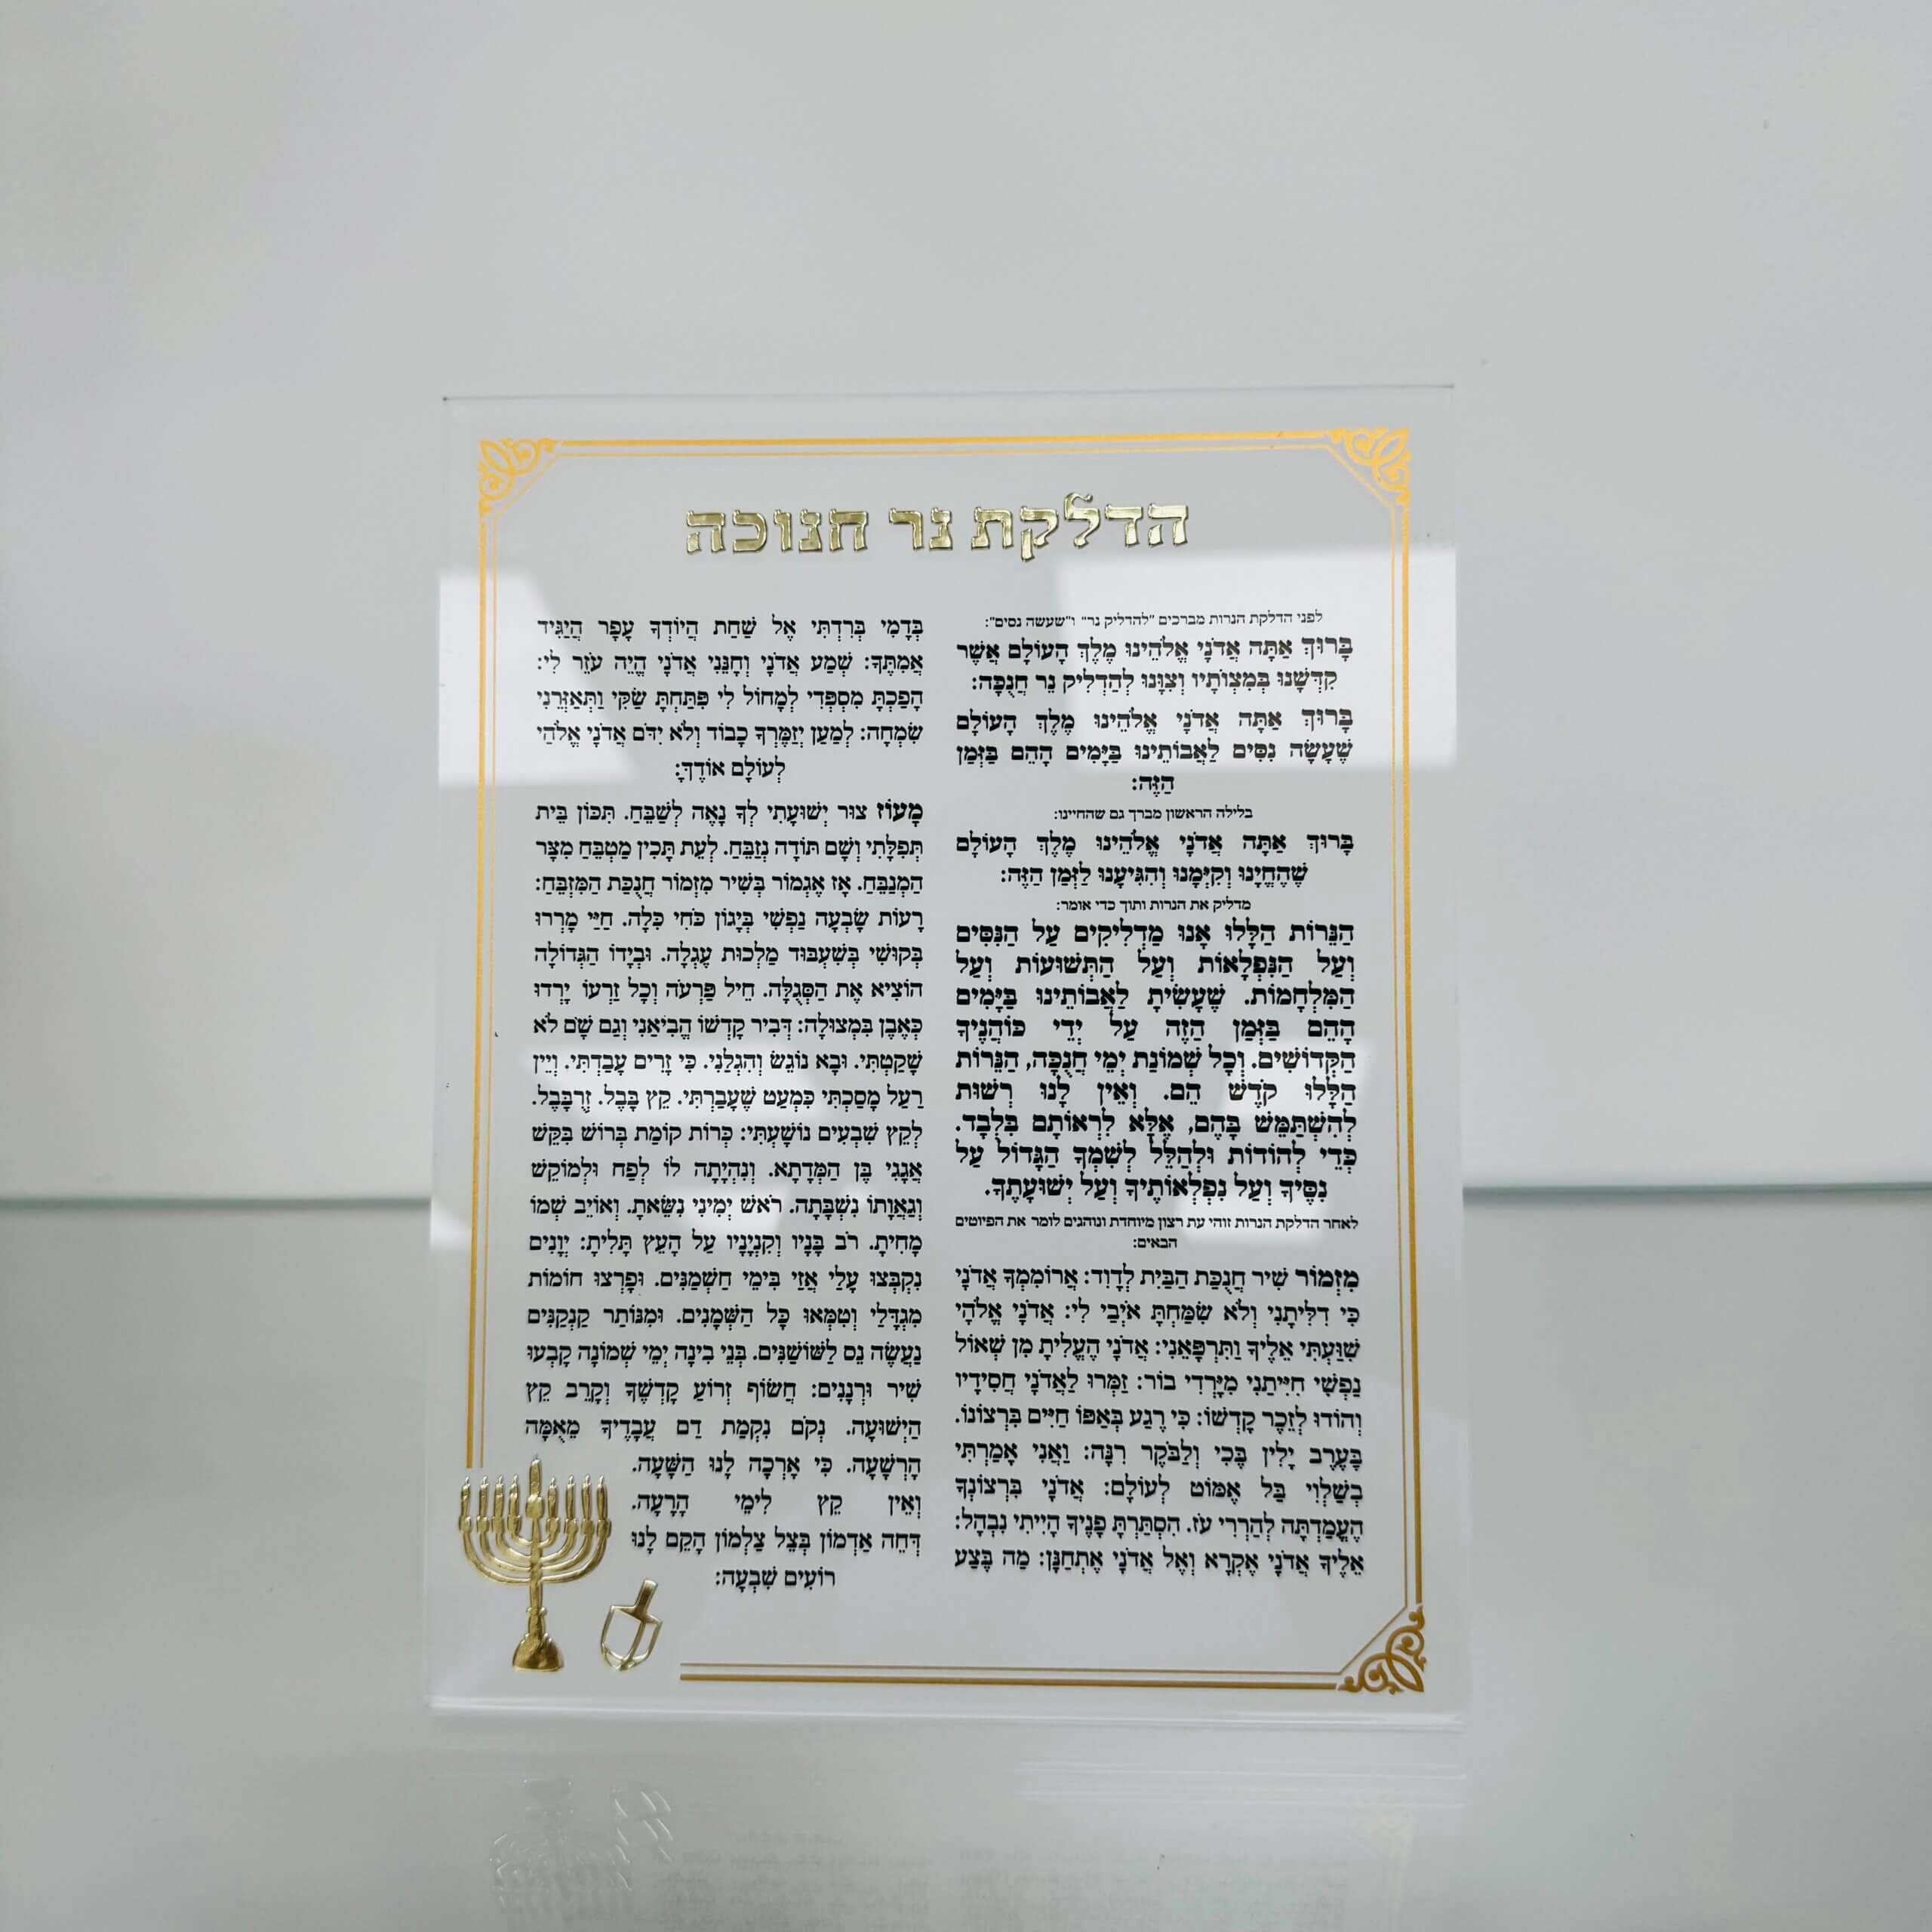 הדלקת נר חנוכה
לפני הדלקת הנרות מברכים "להדליק נר" ו"שעשה נסים":
בָּרוּךְ אַתָּה אֲדֹנָי אֱלֹהֵינוּ מֶלֶךְ הָעוֹלָם אֲשֶׁר
קִדְּשָׁנוּ בְּמִצְוֹתָיו וְצִוָּנוּ לְהַדְלִיק נֵר חֲנֻכָּה:
בָּרוּךְ אַתָּה אֲדֹנָי אֱלֹהֵינוּ מֶלֶךְ הָעוֹלָם
שֶׁעָשָׂה נִסִּים לַאֲבוֹתֵינוּ בַּיָּמִים הָהֵם בַּזְּמַן
הַזֶּה:
בלילה הראשון מברך גם שהחיינו:
בָּרוּךְ אַתָּה אֲדֹנָי אֱלֹהֵינוּ מֶלֶךְ הָעוֹלָם
שֶׁהֶחֱיָנוּ וְקִיְּמָנוּ וְהִגִּיעָנוּ לַזְּמַן הַזֶּה:
מדליק את הנרות ותוך כדי אומר:
הַנֵּרוֹת הַלָּלוּ אָנוּ מַדְלִיקִים עַל הַנִּסִּים
וְעַל הַנִּפְלָאוֹת וְעַל הַתְּשׁוּעוֹת וְעַל
הַמִּלְחָמוֹת. שֶׁעָשִׂיתָ לַאֲבוֹתֵינוּ בַּיָּמִים
הָהֵם בַּזְּמַן הַזֶּה עַל יְדֵי כּוֹהֲנֶיךָ
הַקְּדוֹשִׁים. וְכָל שְׁמוֹנַת יְמֵי חֲנֻכָּה, הַנֵּרוֹת
הַלָּלוּ קֹדֶשׁ הֵם. וְאֵין לָנוּ רְשׁוּת
לְהִשְׁתַּמֵּשׁ בָּהֶם, אֶלָּא לִרְאוֹתָם בִּלְבָד.
כְּדֵי לְהוֹדוֹת וּלְהַלֵּל לְשִׁמְךָ הַגָּדוֹל עַל
נִסֶּיךָ וְעַל נִפְלְאוֹתֶיךָ וְעַל יְשׁוּעָתֶךָ.
לאחר הדלקת הנרות זוהי עת רצון מיוחדת ונוהגים לומר את הפיוטים
הבאים:
מִזְמוֹר שִׁיר חֲנֻכַּת הַבַּיִת לְדָוִד: אֲרוֹמִמְךָ אֲדֹנָי
כִּי דִלִּיתָנִי וְלֹא שִׂמַּחְתָּ אֹיְבַי לִי: אֲדֹנָי אֱלֹהָי
שִׁוַּעְתִּי אֵלֶיךָ וַתִּרְפָּאֵנִי: אֲדֹנָי הֶעֱלִיתָ מִן שְׁאוֹל
נַפְשִׁי חִיִּיתַנִי מִיָּרְדִי בוֹר: זַמְּרוּ לַאֲדֹנָי חֲסִידָיו
וְהוֹדוּ לְזֵכֶר קָדְשׁוֹ: כִּי רֶגַע בְּאַפּוֹ חַיִּים בִּרְצוֹנוֹ.
בָּעֶרֶב יָלִין בֶּכִי וְלַבֹּקֶר רִנָּה: וַאֲנִי אָמַרְתִּי
בְשַׁלְוִי בַּל אֶמּוֹט לְעוֹלָם: אֲדֹנָי בִּרְצוֹנְךָ
הֶעֱמַדְתָּה לְהַרְרִי עֹז. הִסְתַּרְתָּ פָנֶיךָ הָיִיתִי נִבְהָל:
אֵלֶיךָ אֲדֹנָי אֶקְרָא וְאֶל אֲדֹנָי אֶתְחַנָּן: מַה בֶּצַע
בְּדָמִי בְּרִדְתִּי אֶל שַׁחַת הֲיוֹדְךָ עָפָר הֲיַגִּיד
אֲמִתֶּךָ: שְׁמַע אֲדֹנָי וְחָנֵּנִי אֲדֹנָי הֱיֵה עֹזֵר לִי:
הָפַכְתָּ מִסְפְּדִי לְמָחוֹל לִי פִּתַּחְתָּ שַׂקִּי וַתְּאַזְּרֵנִי
שִׂמְחָה: לְמַעַן יְזַמֶּרְךָ כָבוֹד וְלֹא יִדֹּם אֲדֹנָי אֱלֹהַי
לְעוֹלָם אוֹדֶךָּ:
מָעוֹז צוּר יְשׁוּעָתִי לְךָ נָאֶה לְשַׁבֵּחַ. תִּכּוֹן בֵּית
תְּפִלָּתִי וְשָׁם תּוֹדָה נְזַבֵּחַ. לְעֵת תָּכִין מַטְבֵּחַ מִצָּר
הַמְנַבֵּחַ. אָז אֶגְמוֹר בְּשִׁיר מִזְמוֹר חֲנֻכַּת הַמִּזְבֵּחַ:
רָעוֹת שָׂבְעָה נַפְשִׁי בְּיָגוֹן כֹּחִי כִּלָּה. חַיַּי מָרְרוּ
בְּקוּשִׁי בְּשִׁעְבּוּד מַלְכוּת עֶגְלָה. וּבְיָדוֹ הַגְּדוֹלָה
הוֹצִיא אֶת הַסְּגֻלָּה. חֵיל פַּרְעֹה וְכָל זַרְעוֹ יָרְדוּ
כְּאֶבֶן בִּמְצוּלָה: דְּבִיר קָדְשׁוֹ הֱבִיאַנִי וְגַם שָׁם לֹא
שָׁקַטְתִּי. וּבָא נוֹגֵשׂ וְהִגְלַנִי. כִּי זָרִים עָבַדְתִּי. וְיֵין
רַעַל מָסַכְתִּי כִּמְעַט שֶׁעָבַרְתִּי. קֵץ בָּבֶל. זְרֻבָּבֶל.
לְקֵץ שִׁבְעִים נוֹשָׁעְתִּי: כְּרוֹת קוֹמַת בְּרוֹשׁ בִּקֵּשׁ
אֲגָגִי בֶּן הַמְּדָתָא. וְנִהְיָתָה לוֹ לְפַח וּלְמוֹקֵשׁ
וְגַאֲוָתוֹ נִשְׁבָּתָה. רֹאשׁ יְמִינִי נִשֵּׂאתָ. וְאוֹיֵב שְׁמוֹ
מָחִיתָ. רֹב בָּנָיו וְקִנְיָנָיו עַל הָעֵץ תָּלִיתָ: יְוָנִים
נִקְבְּצוּ עָלַי אֲזַי בִּימֵי חַשְׁמַנִּים. וּפָרְצוּ חוֹמוֹת
מִגְדָּלַי וְטִמְּאוּ כָּל הַשְּׁמָנִים. וּמִנּוֹתַר קַנְקַנִּים
נַעֲשָׂה נֵס לַשּׁוֹשַׁנִּים. בְּנֵי בִינָה יְמֵי שְׁמוֹנָה קָבְעוּ
שִׁיר וּרְנָנִים: חֲשׂוֹף זְרוֹעַ קָדְשֶׁךָ וְקָרֵב קֵץ
הַיְשׁוּעָה. נְקֹם נִקְמַת דַּם עֲבָדֶיךָ מֵאֻמָּה
הָרְשָׁעָה. כִּי אָרְכָה לָנוּ הַשָּׁעָה.
וְאֵין קֵץ לִימֵי הָרָעָה.
דְּחֵה אַדְמוֹן בְּצֵל צַלְמוֹן הָקֵם לָנוּ
רוֹעִים שִׁבְעָה: